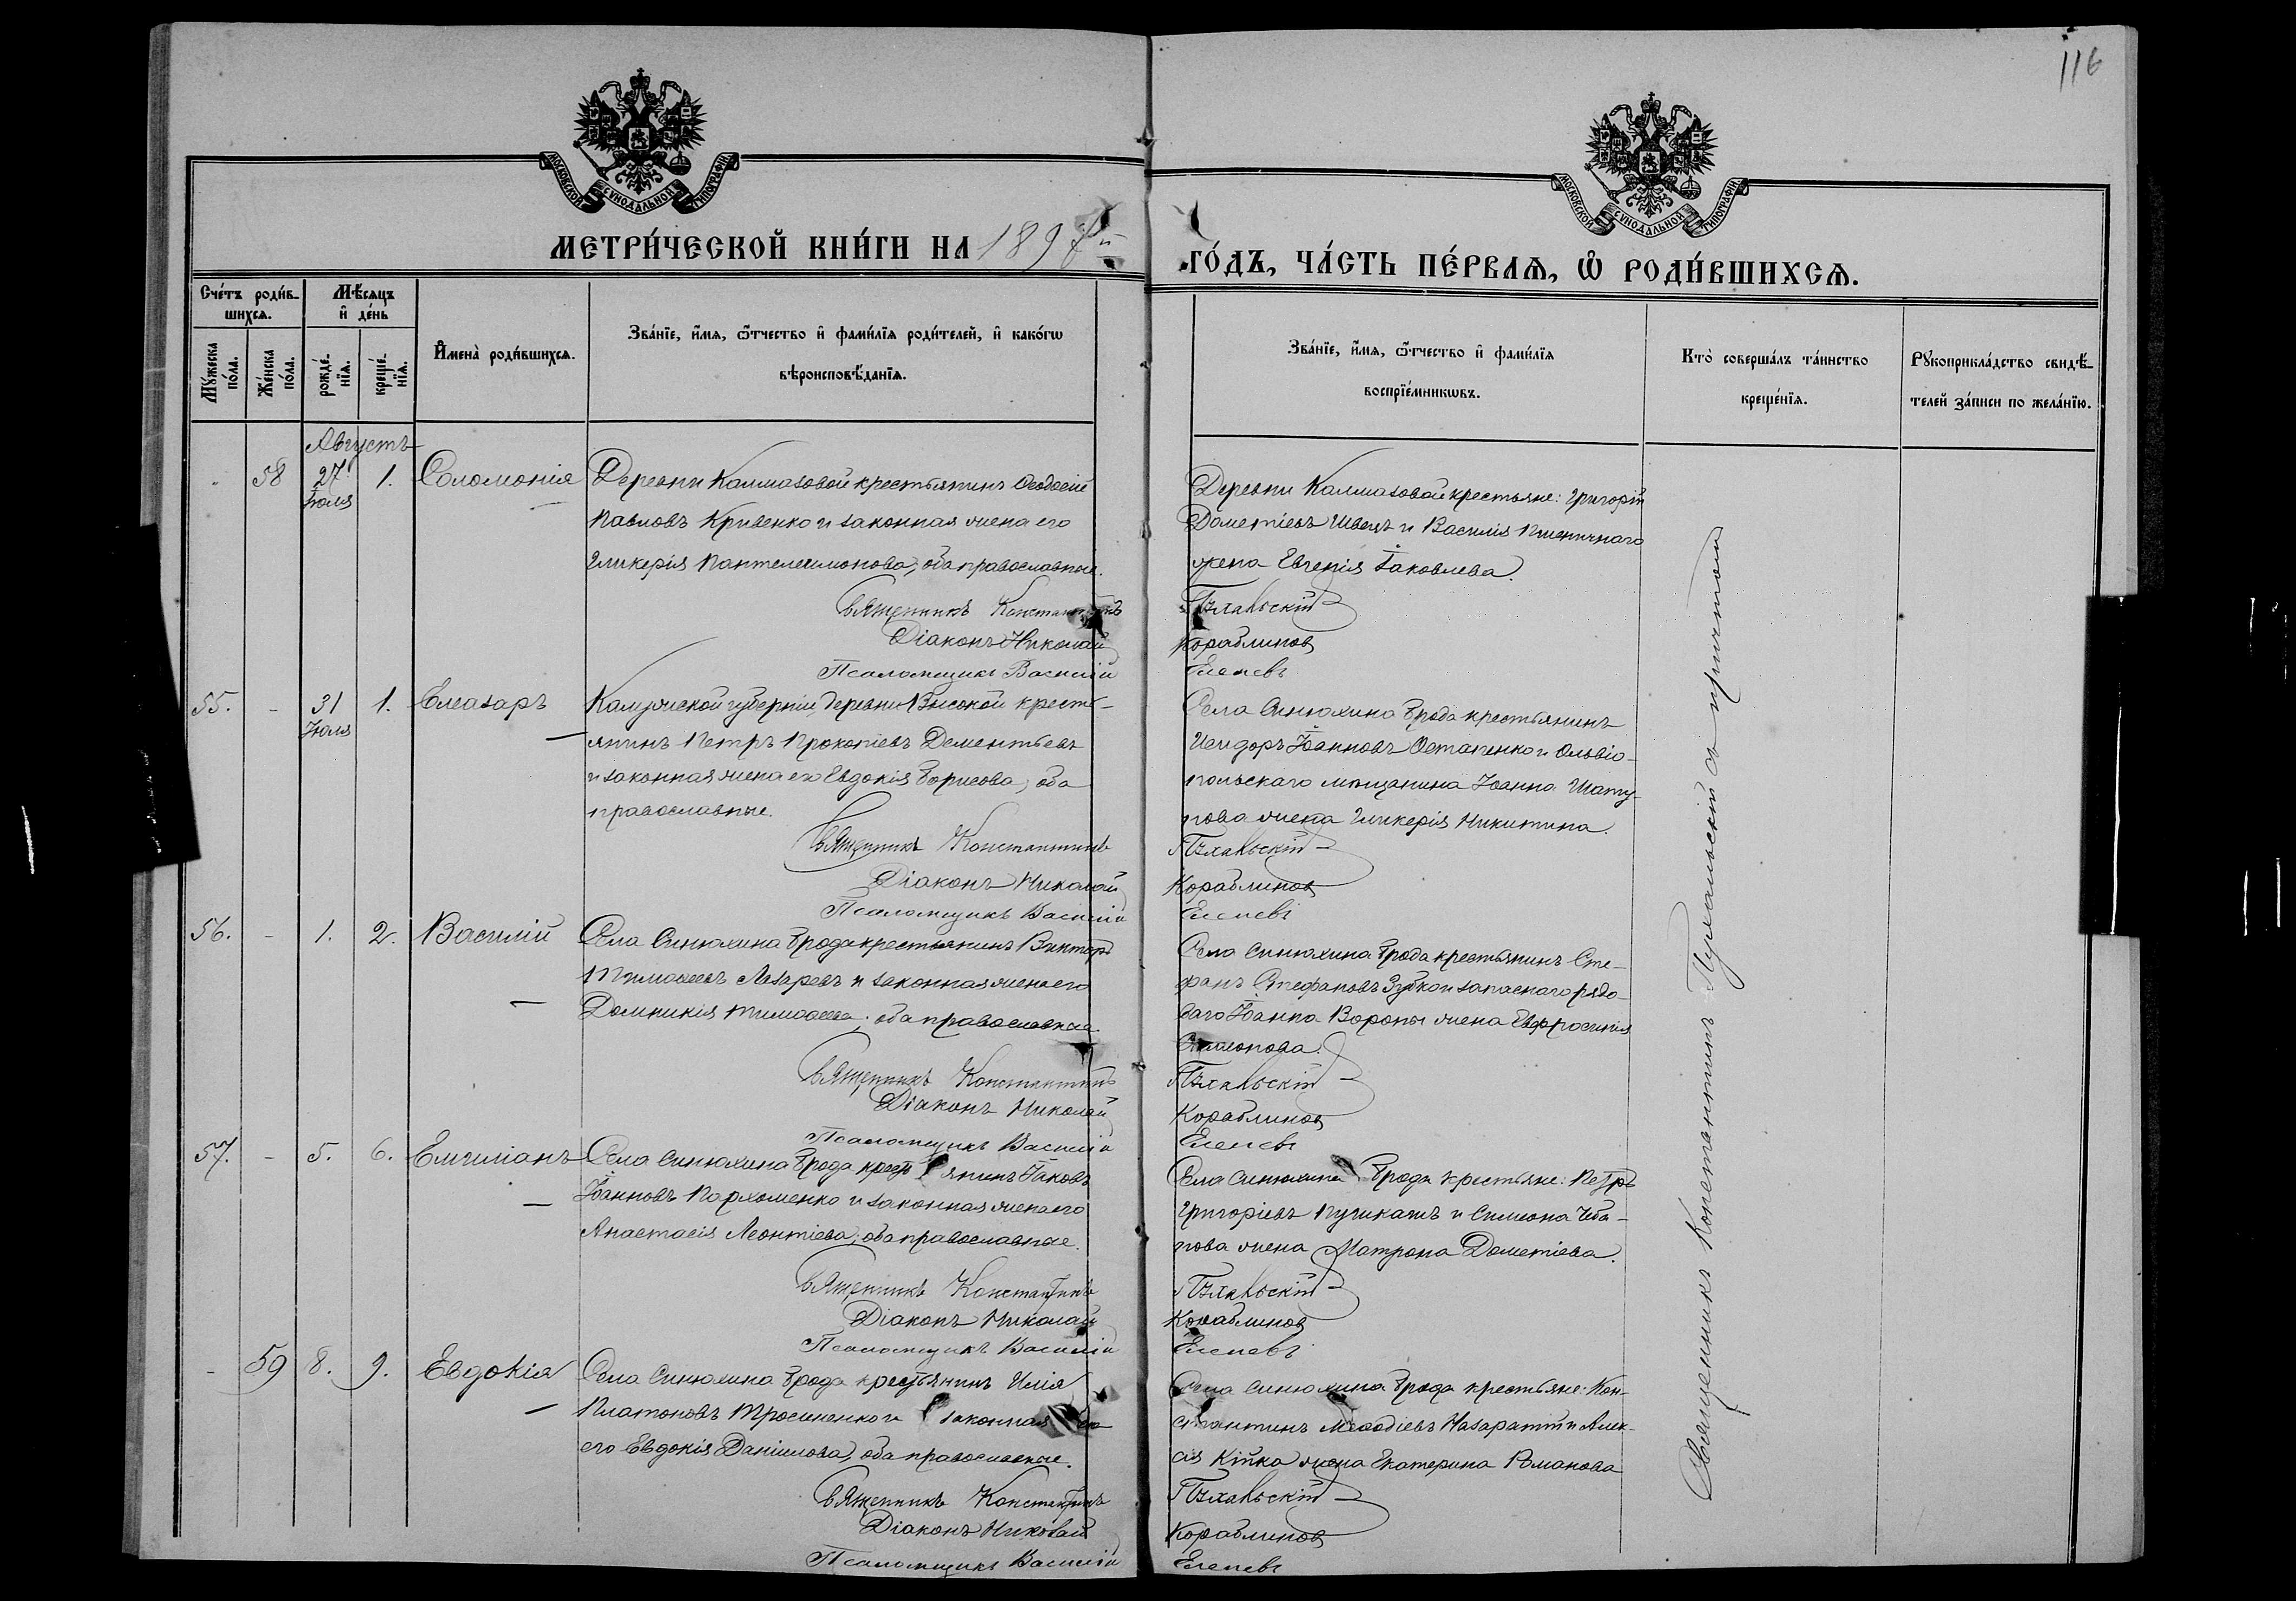 116
МОСКОВСКОЙ СѴНОДАЛЬНОЙ ТИПОГРАФІИ.
МОСКОВСКОЙ СѴНОДАЛЬНОЙ ТИПОГРАФІИ.
МЕТРИ́ЧЕСКОЙ КНИ́ГИ НА 1897й
ГО́ДЪ, ЧА́СТЬ ПЕ́РВАѦ, Ѽ РОДИ́ВШИХСѦ.
Сче́тъ роди́в-
шихсѧ.
Мѣ́сѧцъ
и҆ де́нь
Мꙋ́жеска
по́ла.
Же́нска
по́ла.
рожде́-
нїѧ.
креще́-
нїѧ.
И҆мена̀ роди́вшихсѧ.
Зва́нїе, и҆́мѧ, ѻ҆́тчество и҆ фами́лїѧ роди́телей, и҆ како́гѡ
вѣроисповѣ́данїѧ.
Зва́нїе, и҆́мѧ, ѻ҆́тчество и҆ фами́лїѧ
воспрїе́мникѡвъ.
Кто̀ соверша́лъ та́инство
креще́нїѧ.
Рꙋкоприкла́дство свидѣ́-
телей за́писи по жела́нїю.
Августъ
58 27 Іюля 1. Соломонія
Деревни Калмазовой крестьянинъ Ѳеодосій
Павловъ Кривенко и законная жена его
Гликерія Пантелеимонова, оба православные.
Священникъ Константинъ
Діаконъ Николай
Псаломщикъ Василій
Деревни Калмазовой крестьяне: Григорій
Дометіевъ Швецъ и Василія Пшеничнаго
жена Евгенія Іаковлева.
Пухальскій
Кораблинов
Еленевъ
55. - 31 Іюля 1. Елеазаръ
Калужской губерніи, деревни Высокой кресть-
янинъ Петръ Прокопіевъ Дементьевъ
и законная жена его Евдокія Борисова, оба
православные.
Священникъ Константинъ
Діаконъ Николай
Псаломщикъ Василій
Села Синюхина Брода крестьянинъ
Исидоръ Іоанновъ Остапенко и Ольвіо-
польскаго мѣщанина Іоанна Шату-
нова жена Гликерія Никитина.
Пухальскій
Кораблинов
Еленевъ
56. - 1. 2. Василій
Села Синюхина Брода крестьянинъ Викторъ
Тимоѳеевъ Лазаревъ и законная жена его
Домникія Тимоѳеева, оба православные.
Священникъ Константинъ
Діаконъ Николай
Псаломщикъ Василій
Села Синюхина Брода крестьянинъ Сте-
фанъ Стефановъ Зубко и запаснаго рядо-
ваго Іоанна Вороны жена Евфросинія
Пухальскій
Кораблинов
Еленевъ
57. - 5. 6. Емиліанъ
Села Синюхина Брода крестьянинъ Іаковъ
Іоанновъ Пархоменко и законная жена его
Анастасія Леонтіева, оба православные.
Священникъ Константинъ
Діаконъ Николай
Псаломщикъ Василій
Села Синюхина Брода крестьяне: Петръ
Григоріевъ и Симеона Чеба-
нова жена Матрона Дометіева.
Пухальскій
Кораблинов
Еленевъ
- 59 8. 9. Евдокія
Села Синюхина Брода крестьянинъ Илія
Платоновъ Тросиненко и законная
его Евдокія Даніилова, оба православные.
Священникъ Константинъ
Діаконъ Николай
Псаломщикъ Василій
Села Синюхина Брода крестьяне: Кон-
стантинъ Меѳодіевъ и Алек-
сія Кійка жена Екатерина Романова
Пухальскій
Кораблинов
Еленевъ
Священникъ Константинъ Пухальскій съ причтомъ